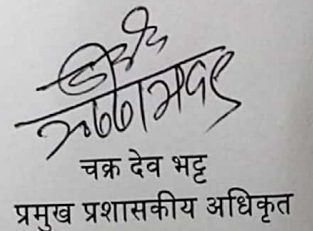 चक्र देव भट्ट
प्रमुख प्रशासकीय अधिकृत